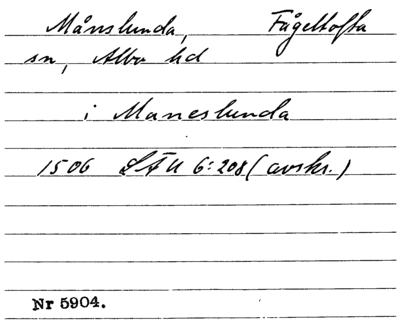 Månslunda, Fågeltofta
sn, Albo hd
i Maneslunda
1506 LÄU 6:208 (avskr.)
Nr 5904.